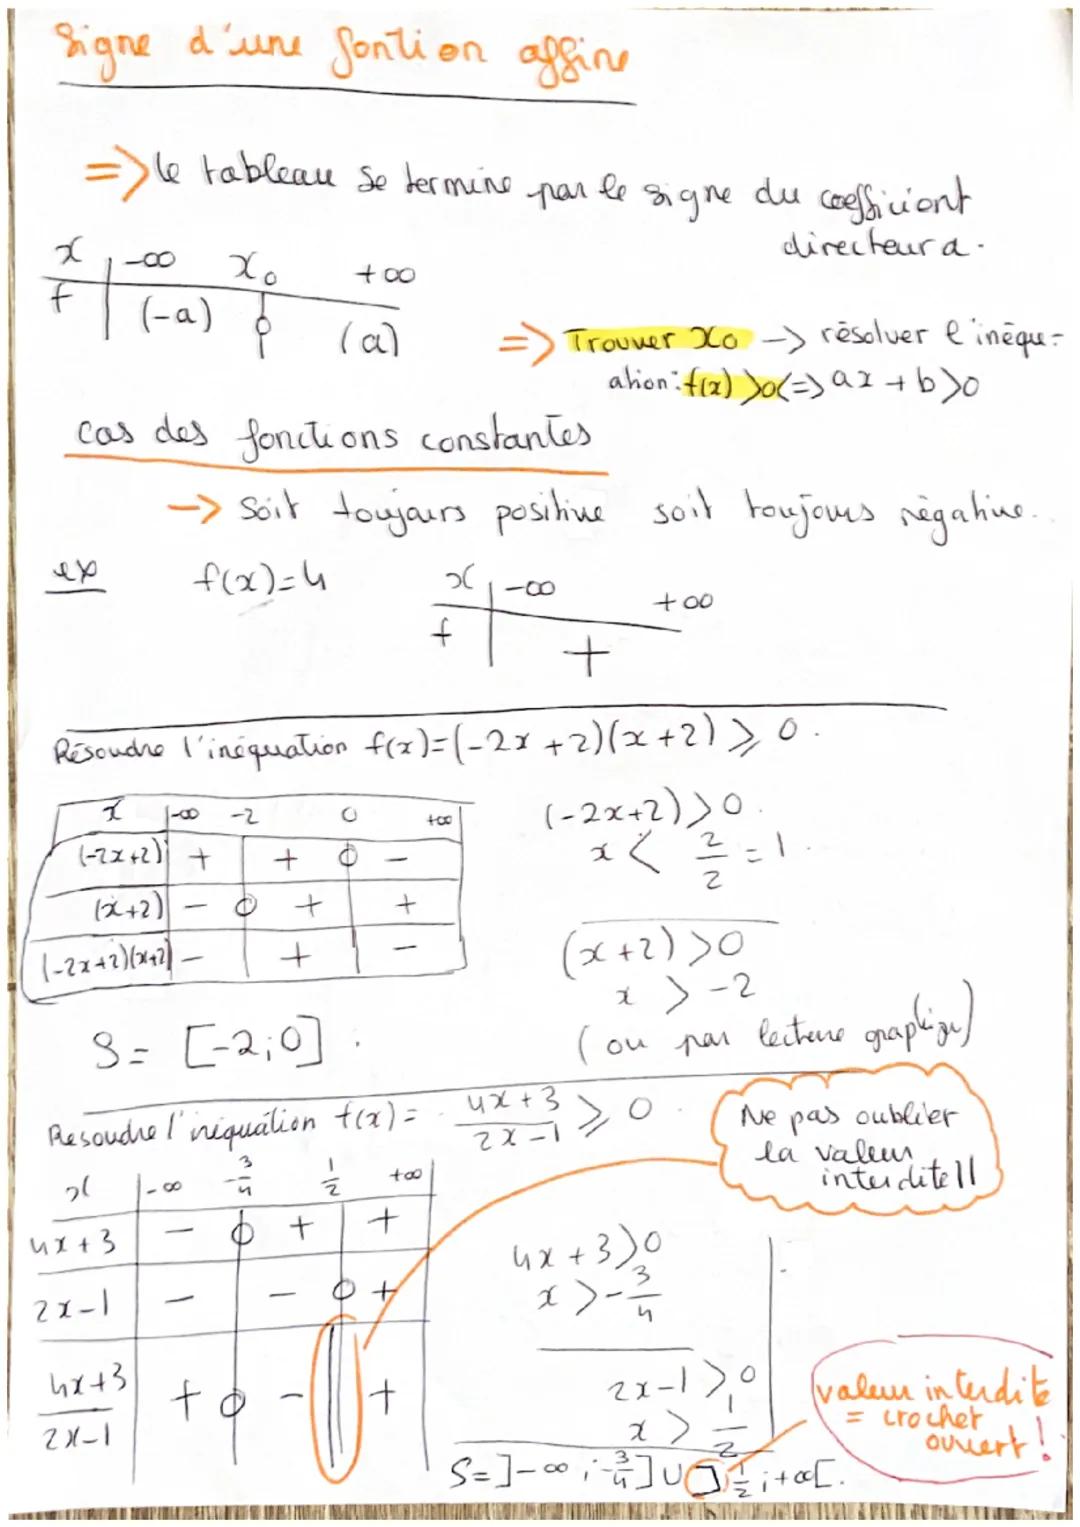 Signe d'une fontion affine
=> le tableau se termine par le signe du coefficient
directeur a.
x -∞ x₀ +∞
f (-a) 0 (a)
=> Trouver x₀ -> résolver l'inéqu-
ation: f(x) >0 <=> ax + b >0
cas des fonctions constantes
-> Soit toujours positive soit toujours négative.
ex f(x)=4
x -∞ +∞
f +
Résoudre l'inéquation f(x)=(-2x+2)(x+2) ⩾ 0.
x -∞ -2 0 +∞
(-2x+2) + + 0 -
(x+2) - 0 + +
(-2x+2)(x+2) - + -
(-2x+2)>0.
x < 2/2 = 1.
(x+2)>0
x > -2
(ou par lecture graphique)
S= [-2;0].
Resoudre l'inéquation f(x)= 4x+3/2x-1 ⩾ 0.
Ne pas oublier
la valeur
interdite!!
x -∞ -3/4 1/2 +∞
4x+3 - 0 + +
2x-1 - - 0 +
4x+3/2x-1 + 0 - || +
4x+3>0
x >-3/4
2x-1>0
x > 1/2
valeur interdite
= crochet
ouvert!
S=]-∞;-3/4]U]1/2;+∞[.